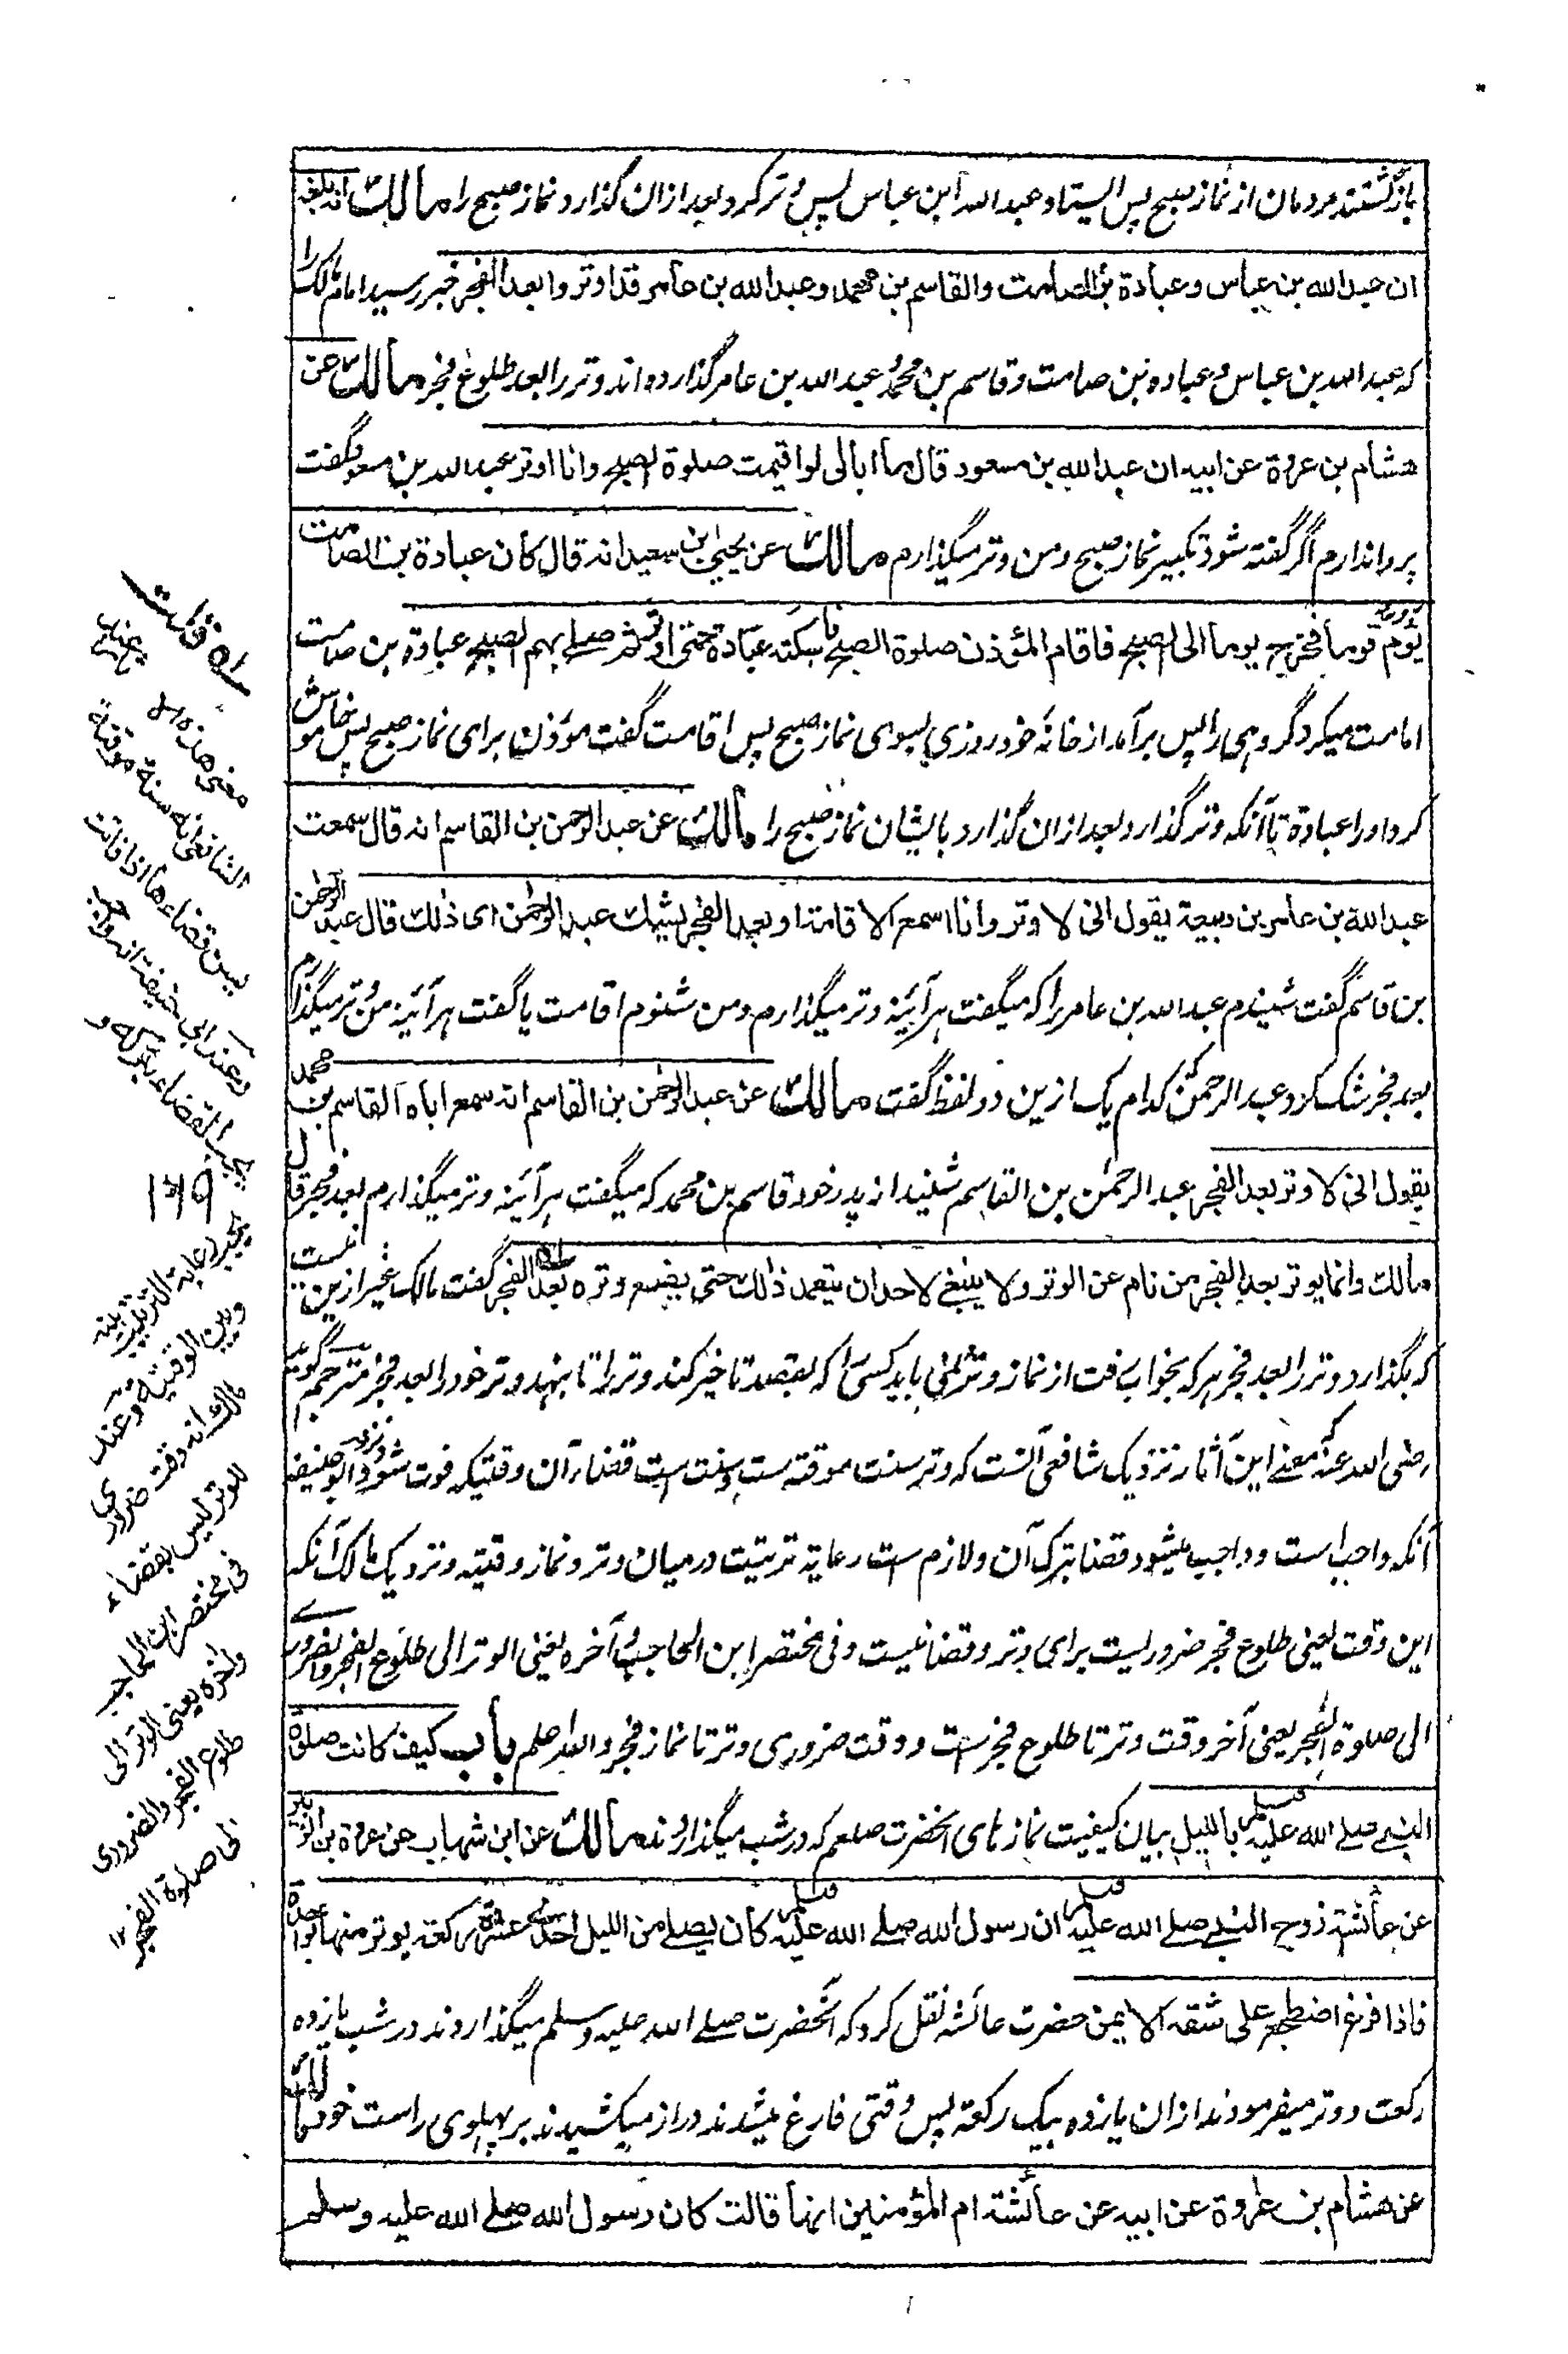 بازگشتند مردمان از نماز صبح پس ایستاد عبد الله ابن عباس پس وتر کرد بعد ازان گذارد نماز صبح را مالك انه بلغه
ان عبد الله بن عباس وعبادة بن الصامت والقاسم بن محمد وعبد الله بن عامر قد اوتروا بعد الفجر خبر رسید امام مالک را
که عبد الله بن عباس و عباده بن صامت و قاسم بن محمد و عبد الله بن عامر گذارده اند وتر را بعد طلوع فجر مالك عن
هشام بن عروة عن ابيه ان عبد الله بن مسعود قال ما ابالى لو اقيمت صلوة الصبح وانا اوتر عبد الله بن مسعود گفت
پروا ندارم اگر گفته شود تکبیر نماز صبح و من وتر میگذارم مالك عن يحيى ابن سعيد انه قال كان عبادة بن الصامت
يؤم قوما فخرج يوما الى الصبح فاقام المؤذن صلوة الصبح فاسكته عبادة حتى اوتر ثم صلے بهم الصبح عبادة بن صامت
امامت میکرد گروهی را پس برآمد از خانۀ خود روزی بسوی نماز صبح پس اقامت گفت مؤذن برای نماز صبح پس خاموش
کرد او را عبادة تا آنکه وتر گذارد بعد ازان گذارد بایشان نماز صبح را مالك عن عبد الرحمن بن القاسم انه قال سمعت
عبد الله بن عامر بن ربيعة يقول انى لاوتر وانا اسمع الاقامة او بعد الفجر يشك عبد الرحمن اى ذلك قال عبد الرحمن
بن قاسم گفت شنیدم عبد الله بن عامر را که میگفت هر آئینه وتر میگذارم و من شنوم اقامت یا گفت هر آئینه من وتر میگذارم
بعد فجر شک کرد عبد الرحمن کدام یک ازین دو لفظ گفت مالك عن عبد الرحمن بن القاسم انه سمع اباه القاسم بن محمد
يقول انى لاوتر بعد الفجر عبد الرحمن بن القاسم شنید از پدر خود قاسم بن محمد که میگفت هر آئینه وتر میگذارم بعد فجر قال
مالك وانما يوتر بعد الفجر من نام عن الوتر ولا ينبغى لاحد ان يتعمد ذلك حتى يضع وتره بعد الفجر گفت مالک غیر ازین نیست
که بگذارد وتر را بعد فجر هر که بخواب رفت از نماز وتر و نمی باید کسی را که بقصد تاخیر کند وتر را تا بنهد وتر خود را بعد فجر مترجم گوید
رضی الله عنه معنے این آثار نزدیک شافعی آنست که وتر سنت موقته ست و سنت ست قضاء آن وقتیکه فوت شود و نزد ابو حنیفه
آنکه واجب است و واجب میشود قضا بترک آن و لازم ست رعایة ترتیت درمیان وتر و نماز وقتیه و نزدیک مالک آنکه
این وقت یعنی طلوع فجر ضروریست برای وتر و قضا نیست و فی مختصر ابن الحاجب و آخره یعنی الوتر الی طلوع الفجر والضروری
الی صلوة الفجر یعنی آخر وقت وتر تا طلوع فجر ست و وقت ضروری وتر تا نماز فجر والله اعلم باب كيف كانت صلوة
النبے صلے الله عليه وسلم بالليل بیان کیفیت نماز های آنحضرت صلعم که در شب میگذاردند مالك عن ابن شهاب عن عروة بن الزبير
عن عائشة زوج النبے صلے الله عليه وسلم ان رسول الله صلے الله عليه وسلم كان يصلے من الليل احدى عشرة ركعة يوتر منها بواحدة
فاذا فرغ اضطجع على شقه الايمن حضرت عائشه نقل کرد که آنحضرت صلے الله علیه وسلم میگذاردند در شب یازده
رکعت و وتر میفرمودند ازان یازده بیک رکعة پس وقتی فارغ میشدند دراز میکشیدند بر پهلوی راست خود مالك
عن هشام بن عروة عن ابيه عن عائشة ام المؤمنين انها قالت كان رسول الله صلے الله عليه وسلم
قلت
معنى هذه
الشافعى انه سنة موقتة
يسن قضاءها اذا فاتت
وعند ابى حنيفة انه واجب
يجب القضاء بتركه و
۱۷۹
يجب رعاية الترتيب بينه
وبين الوقتية وعند
مالك انه وقت ضرورى
للوتر ليس بقضاء
فى مختصر ابن الحاجب
وآخره يعنى الوتر الى
طلوع الفجر والضرورى
الى صلوة الفجر ۱۲